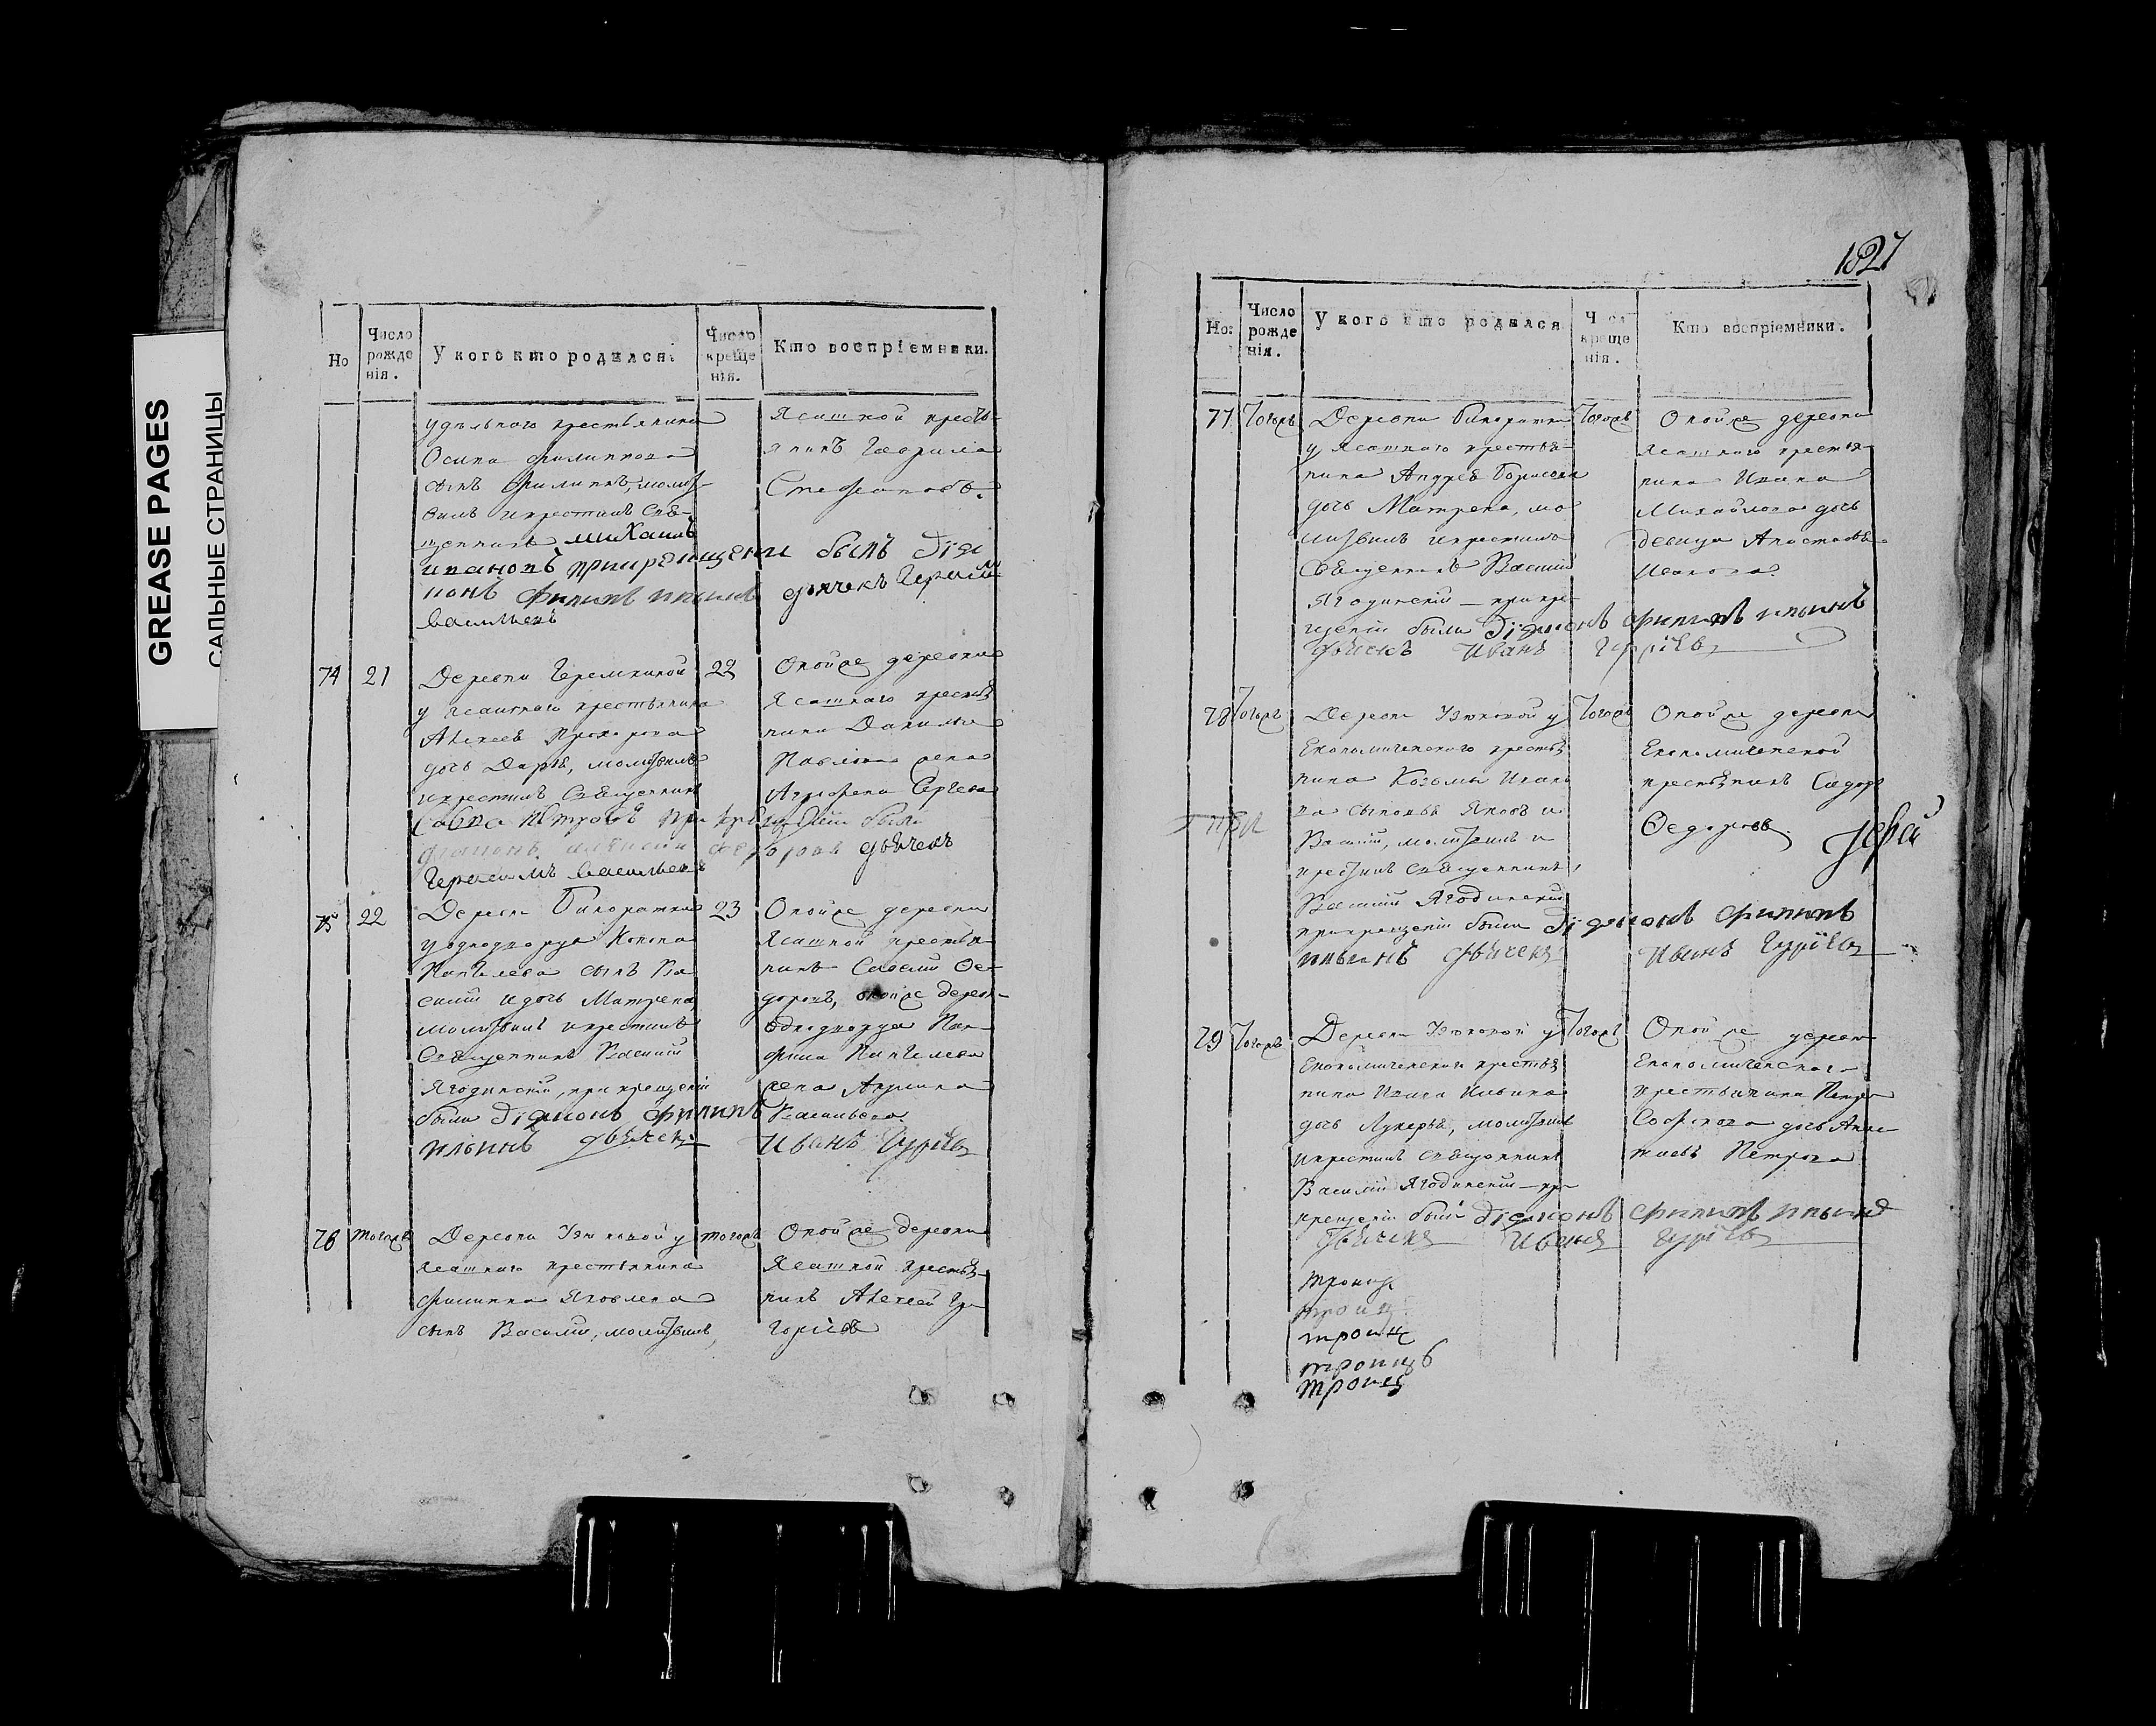 GREASE PAGES
САЛЬНЫЕ СТРАНИЦЫ
Но
Число рожде нія.
У кого кто родился.
Число креще нія.
Кто воспріемники.
удѣльнаго крестьянина
Осипа Филипова
сынъ Филипъ, молит-
вилъ и крестилъ Свя-
щенникъ Михаилъ
Ивановъ при крещеніи былъ Діа
конъ Филипъ Ильинъ дьячекъ Герасим
Васильевъ
Ясашной кресть-
янинъ Гаврила
Стефановъ.
74 21
Деревни Черемкиной
у ясашнаго крестьянина
Алексея Прохорова
дочь Дарья, молитвилъ
и крестилъ Священникъ
Савва Петровъ при крещеніи были
Дьяконъ Алексей Федоровъ дьячекъ
Герасимъ Васильевъ
22
Оной же деревни
Ясашнаго крестья
нина Данилы
Павлова жена
Агрофена Сергеева
75 22
Деревни Бикоратки
у однодворца Конона
Пантелева сынъ Ва
силий и дочь Матрена,
молитвилъ и крестилъ
Священникъ Василий
Ягодинский, при крещеніи
были Діаконъ Филипъ
Ильинъ дьячекъ Иванъ Гурїевъ
23
Оной же деревни
Ясашной крестья
нинъ Савелий Фе-
доровъ, оной же дерев-
однодворца Пан-
фила Пантелева
жена Акулина
Васильева
76 тогожъ
Деревни Уэнковой у
ясашнаго крестьянина
Филиппа Яковлева
сынъ Василий, молитвилъ,
тогожъ
Оной же деревни
Ясашной крестья-
нинъ Алексей Гри
горьевъ
1827
Но:
Число рожде нія.
У кого кто родился
Числ креще нія.
Кто воспріемники.
77 Тогожъ
Деревни Бикоратки
у Ясашнаго крестья-
нина Андрея Борисова
дочь Матрена, мо
литвилъ и крестилъ
Священникъ Василий
Ягодинский — при кре-
щеніи были Діаконъ Филипъ Ильинъ
Дьячекъ Иванъ Гурїевъ
Тогожъ
Оной же деревни
Ясашнаго крестья-
нина Ивана
Михайлова дочь
девица Анастасья
Иванова.
78 Тогожъ
Деревни Уэнковой у
Економическаго крестья
нина Козьмы Ивано
ва сыновья Яковъ и
Василий, молитвилъ и
крестилъ священникъ,
Василий Ягодинский
при крещеніи были Діаконъ Филипъ
Ильинъ дьячекъ Иванъ Гурїевъ
Тогожъ
Оной же деревни
Економической
крестьянинъ Сидор
Федоровъ.
Іерей
79 Тогожъ
Деревни Уэнковой у
Економическаго крестья
нина Ивана Ильина
дочь Лукерья, молитвилъ
и крестилъ священникъ
Василий Ягодинский — при
крещеніи были Діаконъ Филипъ Ильинъ
Дьячекъ Иванъ Гурїевъ
Тогожъ
Оной же деревни
Економическаго
крестьянина Петра
Софронова дочь Анас
тасья Петрова
троиц
троиц
троиц
троицъ
троиц